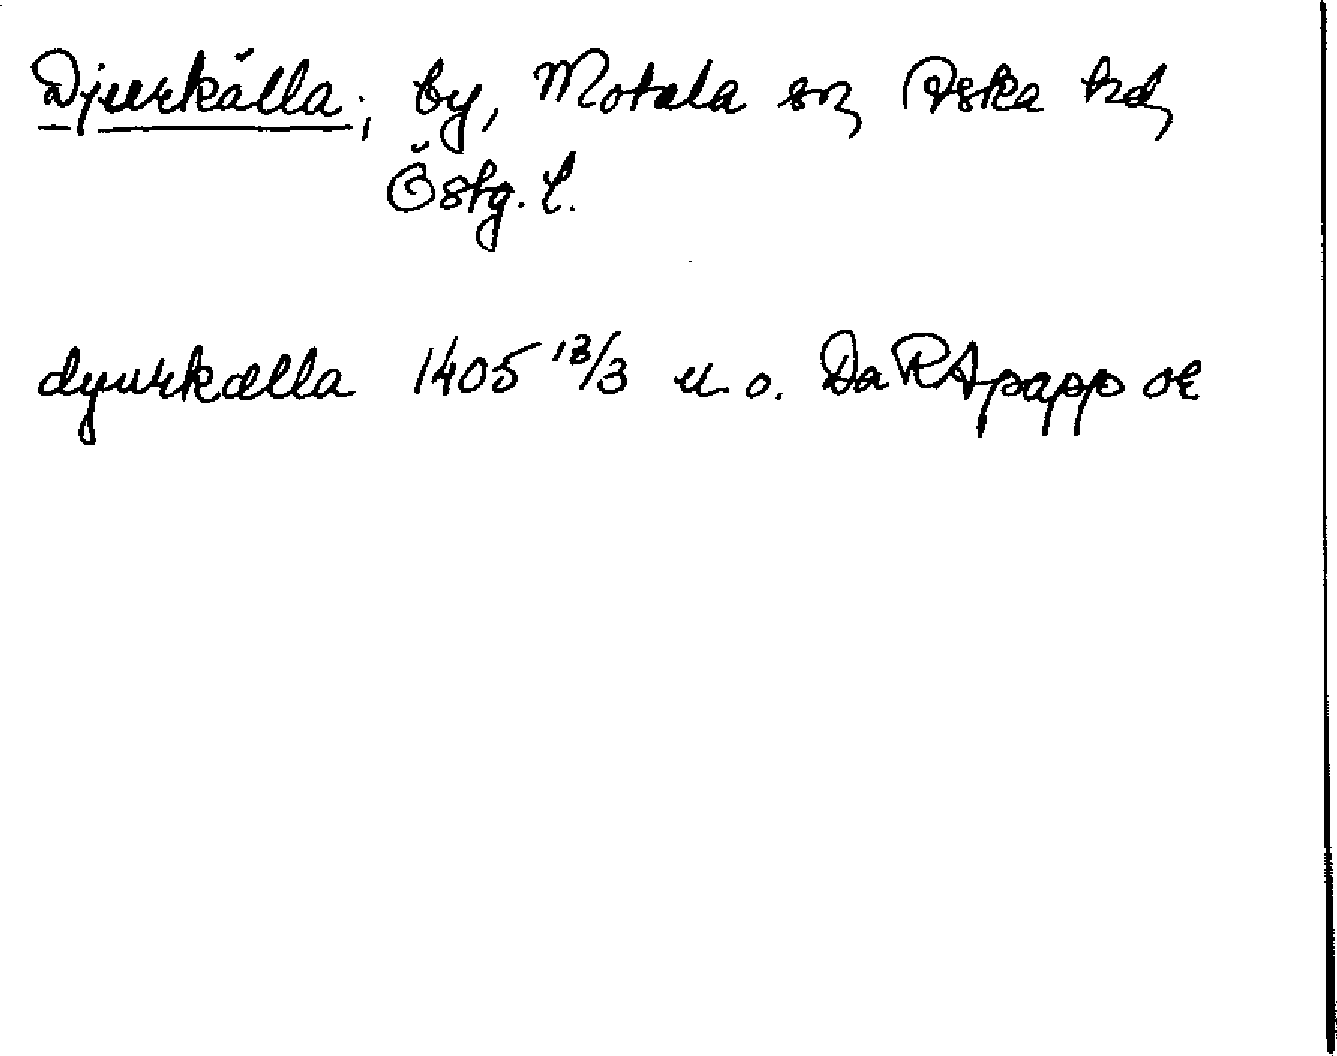 Djurkälla; by, Motala sn, Aska hd,
Östg. l.
dyurkælla 1405 13/3 u. o. DaRApapp or